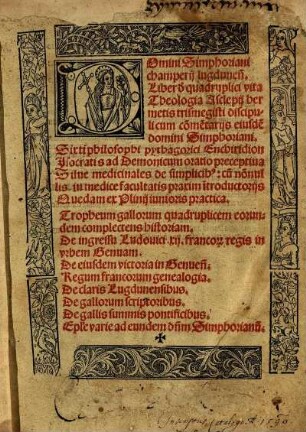 Domini Simphoriani
champerij lugduneñ.
Liber d̄ quadruplici vita
Theologia Asclepij her
metis trismegisti discipu
li cum cōmētarijs eiusdē
domini Simphoriani.
Sixti philosophi pytbagorici Enchiridion
Isocratis ad Demonicum oratio preceptiua
Silue medicinales de simplicibꝰ: cū nōnul
lis in medice facultatis praxim ītroductorijs
Quedam ex Plinij iunioris practica.
Tropheum gallorum quadruplicem eorun
dem complectens historiam.
De ingressu Ludouici .xij. francoꝝ regis in
vrbem Genuam.
De eiusdem victoria in Genueñ.
Regum francorum genealogia.
De claris Lugdunensibus.
De gallorum scriptoribus.
De gallis summis pontificibus.
Eple varie ad eundem dñm Simphorianū.